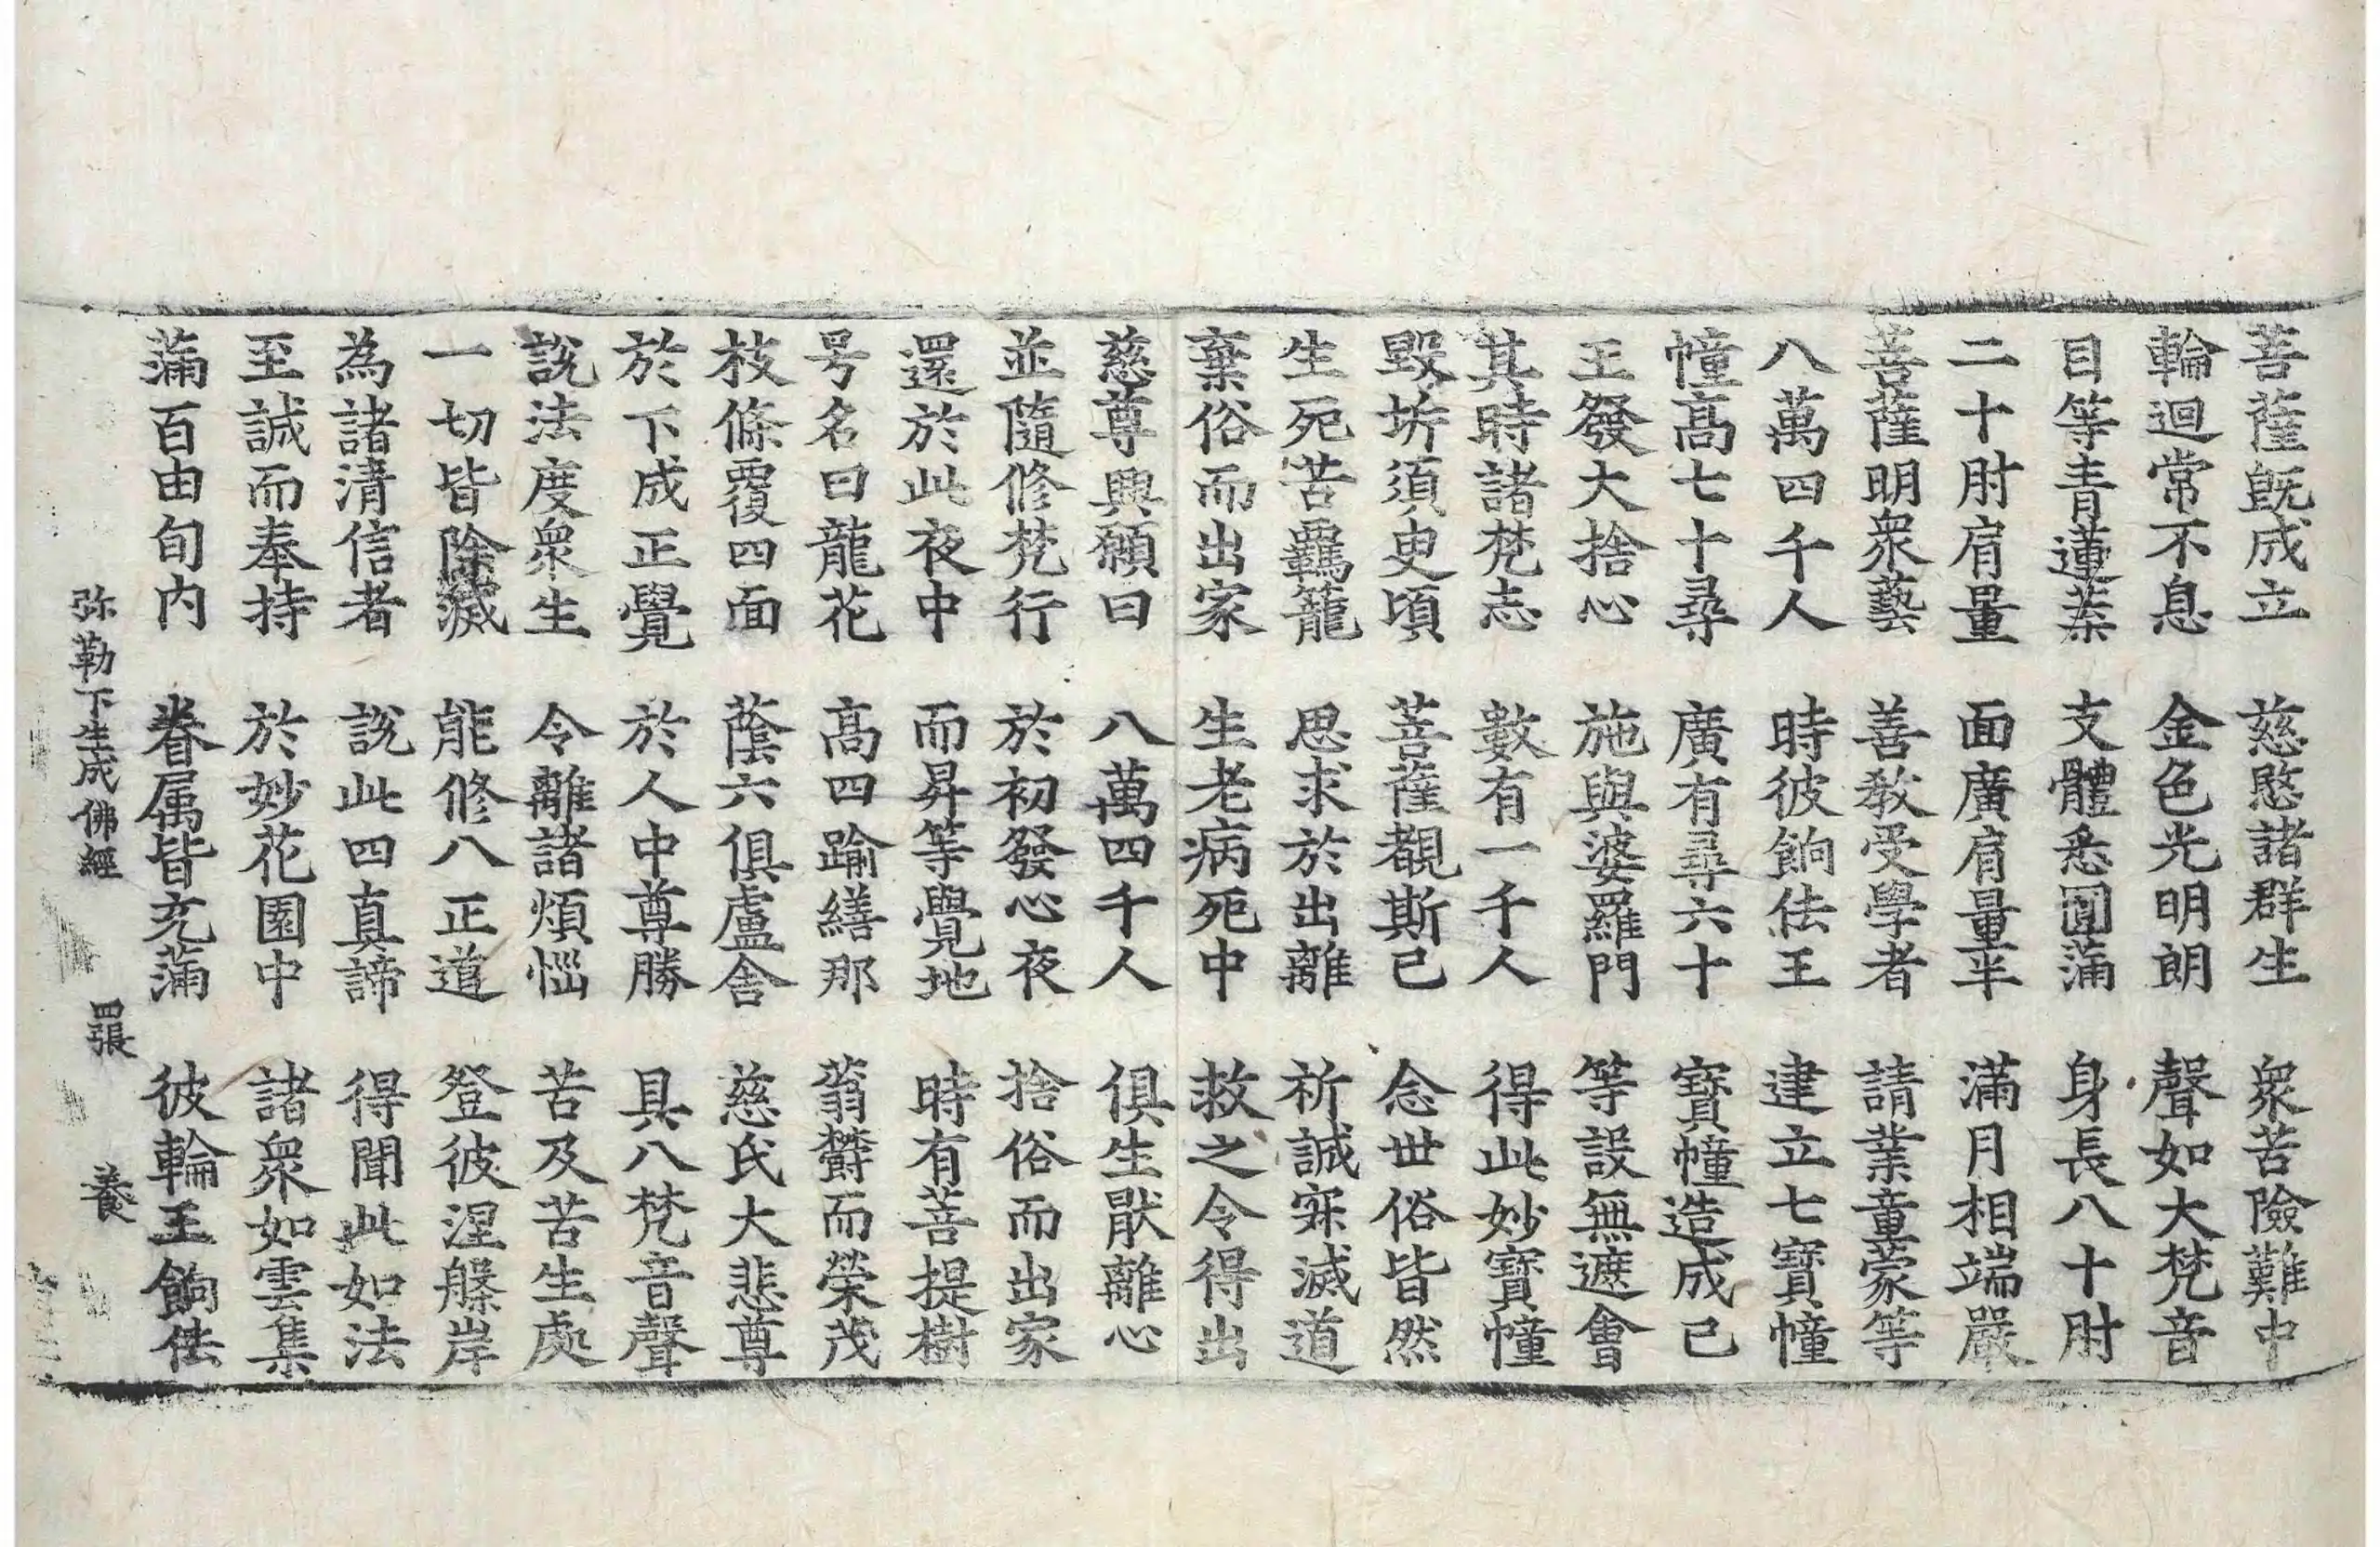 菩薩旣成立　慈愍諸群生　衆苦險難中
輪迴常不息　金色光明朗　聲如大梵音
目等青蓮葉　支體悉圓滿　身長八十肘
二十肘肩量　面廣肩量半　滿月相端嚴
菩薩明衆藝　善教受學者　請業童蒙等
八萬四千人　時彼餉佉王　建立七寶幢
幢高七十尋　廣有尋六十　寶幢造成已
王發大捨心　施與婆羅門　等設無遮會
其時諸梵志　數有一千人　得此妙寶幢
毀坼須臾頃　菩薩覩斯已　念世俗皆然
生死苦羈籠　思求於出離　祈誠寂滅道
棄俗而出家　生老病死中　救之令得出
慈尊興願日　八萬四千人　俱生猒離心
並隨修梵行　於初發心夜　捨俗而出家
還於此夜中　而昇等覺地　時有菩提樹
号名曰龍花　高四踰繕那　蓊欝而榮茂
枝條覆四面　蔭六俱盧舍　慈氏大悲尊
於下成正覺　於人中尊勝　具八梵音聲
說法度衆生　令離諸煩惱　苦及苦生處
一切皆除滅　能修八正道　登彼涅槃岸
為諸清信者　說此四真諦　得聞此如法
至誠而奉持　於妙花園中　諸衆如雲集
滿百由旬内　眷属皆充滿　彼輪王餉佉
弥勒下生成佛經　四張　養